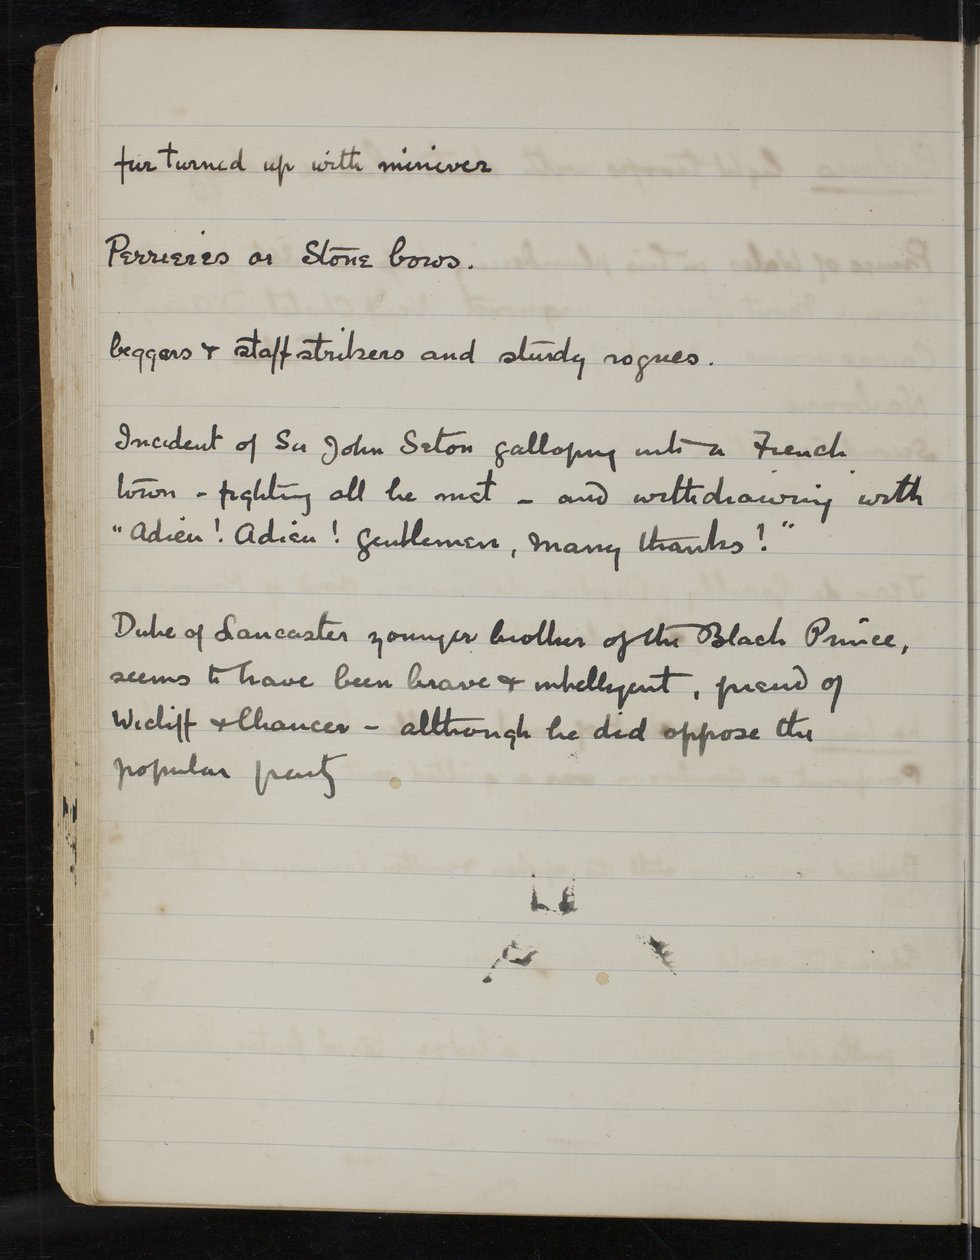 fur turned up with miniver
Perrieres or Stone bows.
beggars & staff strikers and sturdy rogues.
Incident of Sir John Seton galloping into a French
town - fighting all he met - and withdrawing with
"Adieu! Adieu! Gentlemen, many thanks!"
Duke of Lancaster younger brother of the Black Prince,
seems to have been brave & intelligent, friend of
Wicliff & Chaucer - although he did oppose the
popular party